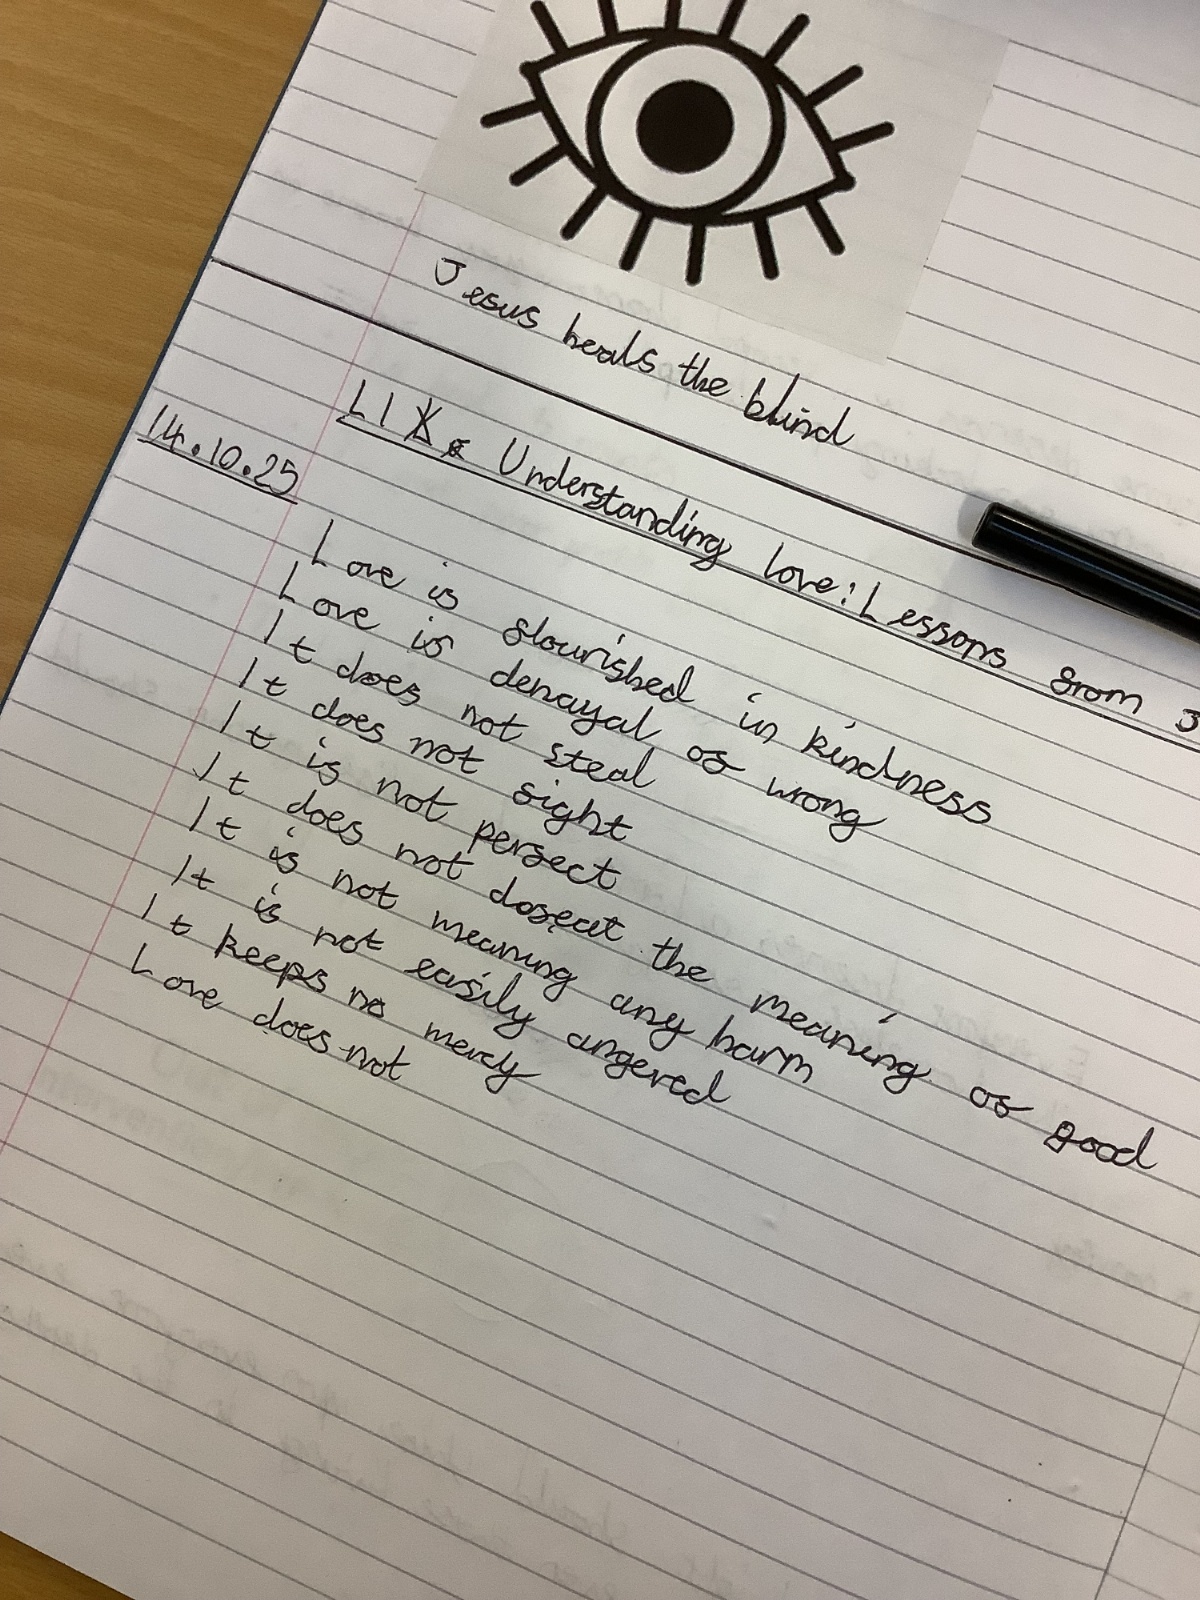 Jesus heals the blind
14.10.25
LI Understanding love: Lessons from J
Love is flourished in kindness
Love is denayal of wrong
It does not steal
It does not fight
It is not perfect
It does not defeat the meaning of good
It is not meaning any harm
It is not easily angered
It keeps no mercy
Love does not